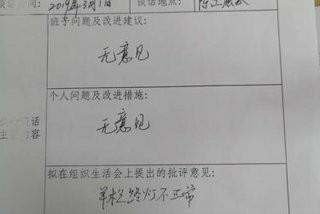 2019年3月1日 谈话地点:
班子问题及改进建议:
无意见
个人问题及改进措施:
无意见
谈话
主 内容
拟在组织生活会上提出的批评意见:
单枪路灯不正常